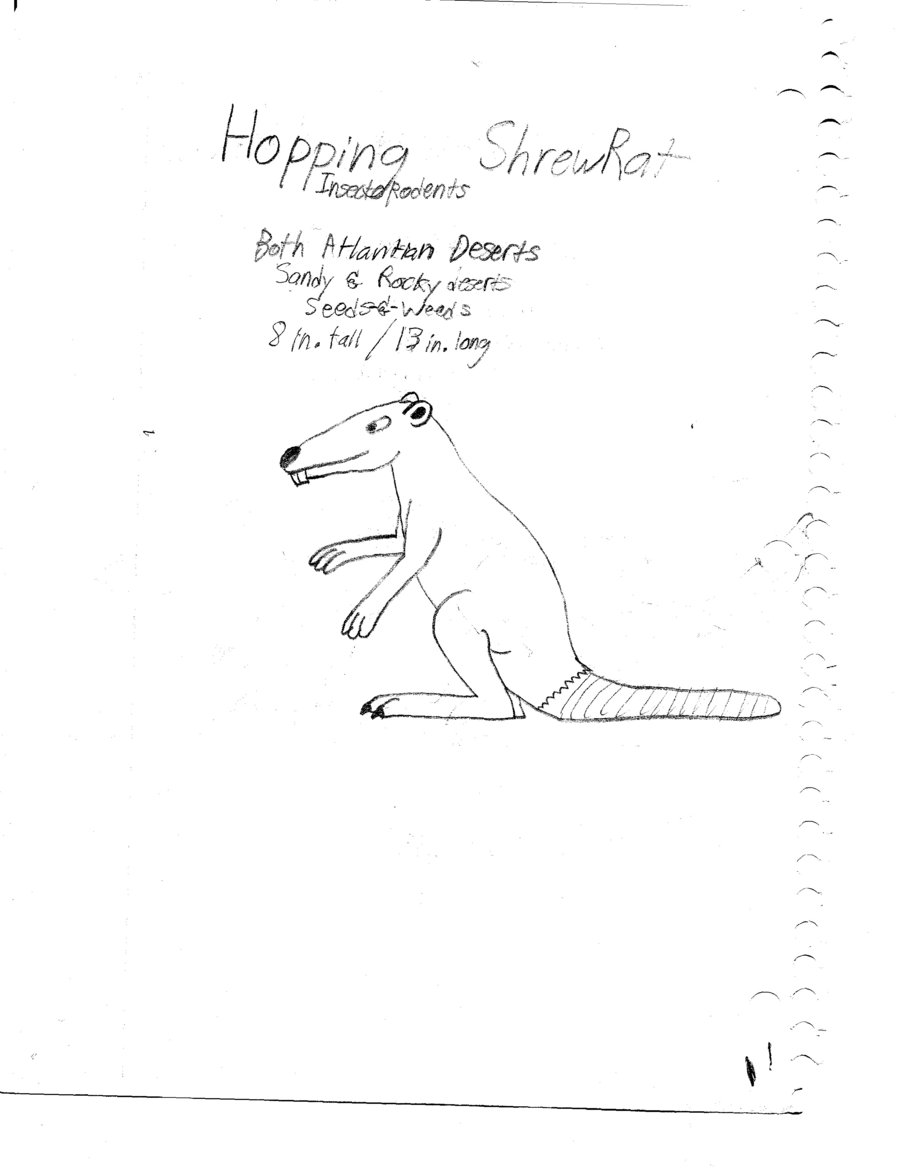 Hopping ShrewRat
InsectoRodents
Both Atlantian Deserts
Sandy & Rocky deserts
Seeds & Weeds
8 in. tall / 13 in. long